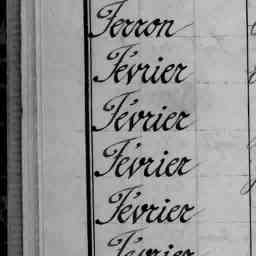 Ferron
Février
Février
Février
Février
Février